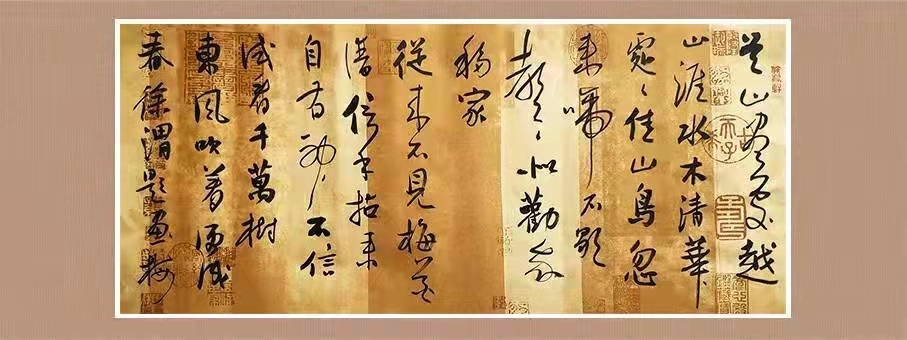 吴山盡處越
山涯水木清華
處々佳山鳥忽
来啼不歇
聲々似勸余
移家
從来不見梅花
譜信手拈来
自有神不信
試看千萬樹
東風吹着便成
春徐渭題畫梅